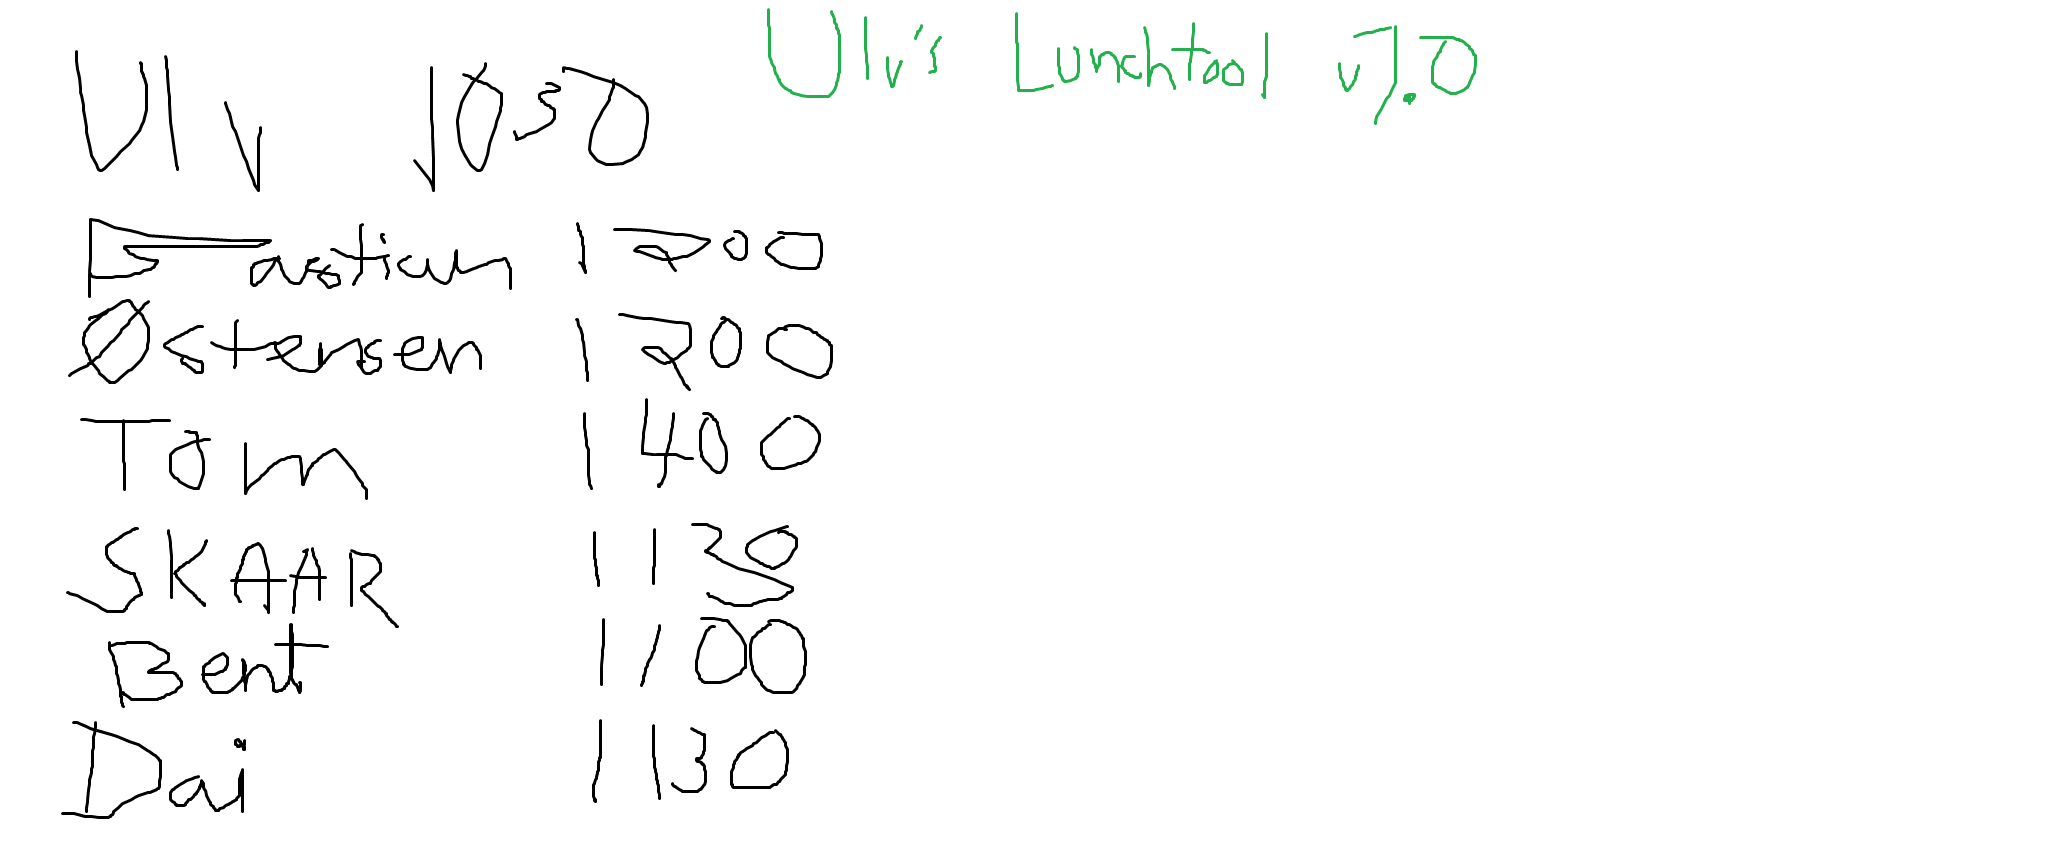 Ulv's Lunchtool v7.0
Ulv 1030
Bastian 1200
Østensen 1200
Tom 1400
SKAAR 1130
Bent 1100
Dai 1130